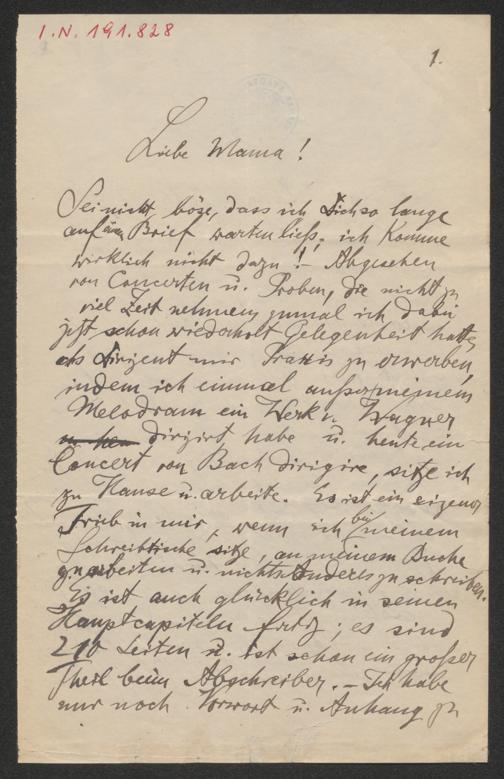 I.N. 191.828
1.
Liebe Mama!
Sei nicht böse, dass ich Dich so lange
auf einen Brief warten ließ; ich komme
wirklich nicht dazu! Abgesehen
von Concerten u. Proben, die nicht zu
viel Zeit nehmen, zumal ich dabei
jetzt schon wiederholt Gelegenheit hatte,
als Dirigent mir Praxis zu erwerben,
indem ich einmal außer meinem
Melodram ein Werk v. Wagner
dirigirt habe u. heute ein
Concert von Bach dirigire, sitze ich
zu Hause u. arbeite. Es ist ein eigener
Trieb in mir, wenn ich bei meinem
Schreibtische sitze, an meinem Buche
zu arbeiten u. nichts Anderes zu schreiben.
Es ist auch glücklich in seinen
Hauptcapiteln fertig; es sind
210 Seiten u. ist schon ein großer
Theil beim Abschreiber. – Ich habe
nur noch Vorwort u. Anhang zu